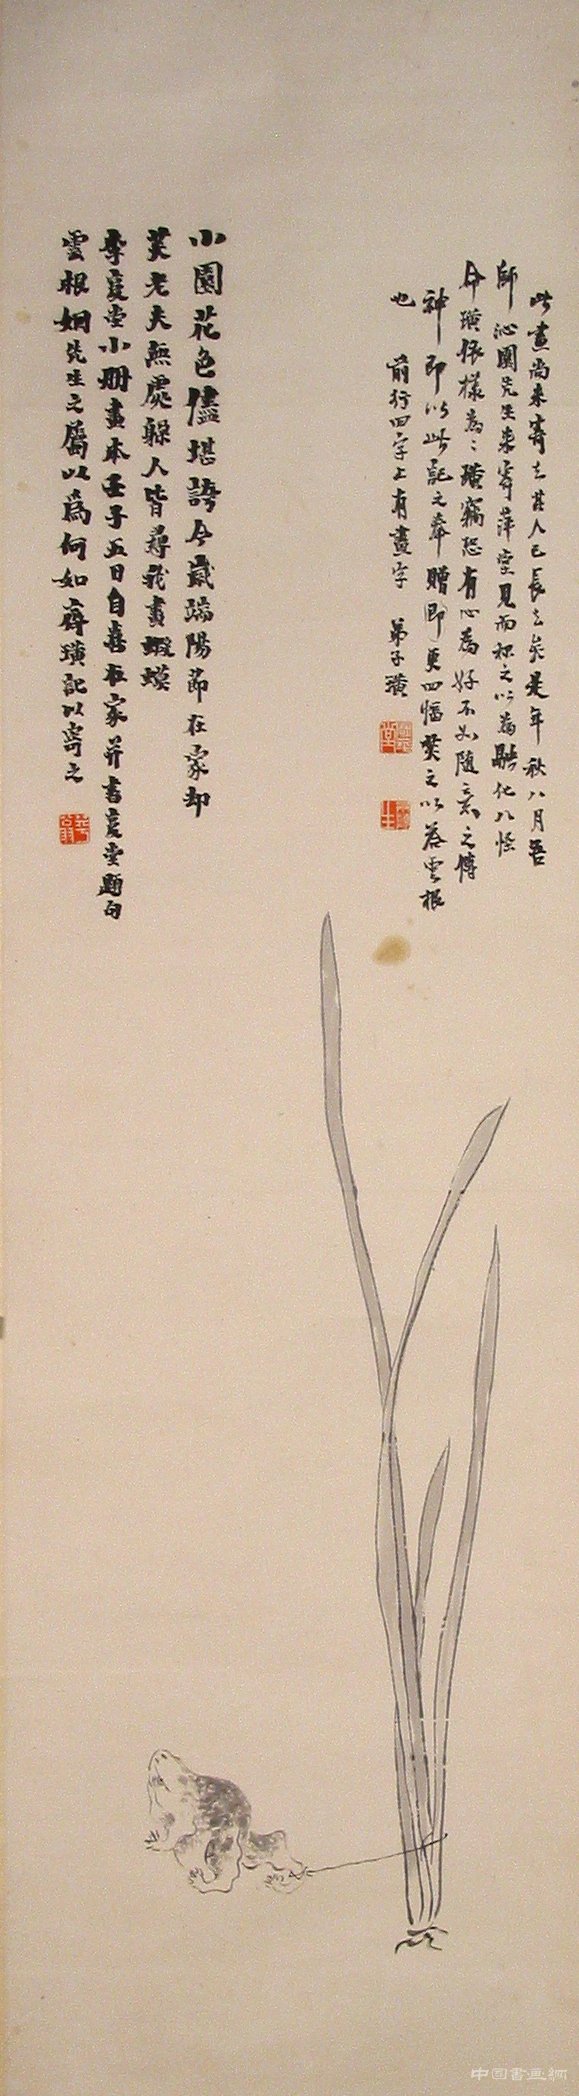 此畫尚未寄去其人已長去矣是年秋八月吾
師沁園先生來寄萍堂見而称之以為融化八怪
命璜依樣為之璜竊恐有心為好不如隨意之傳
神即以此記之奉贈即更四幅焚之以答雲根
也 前行四字上有畫字 弟子璜
小園花色儘堪誇今歲端陽節在家却
笑老夫無處躲人皆尋我畫蝦蟆
李復堂小冊畫本壬子五日自喜在家并書復堂題句
雲根姻先生之屬以為何如齊璜記以寄之
中國書画網